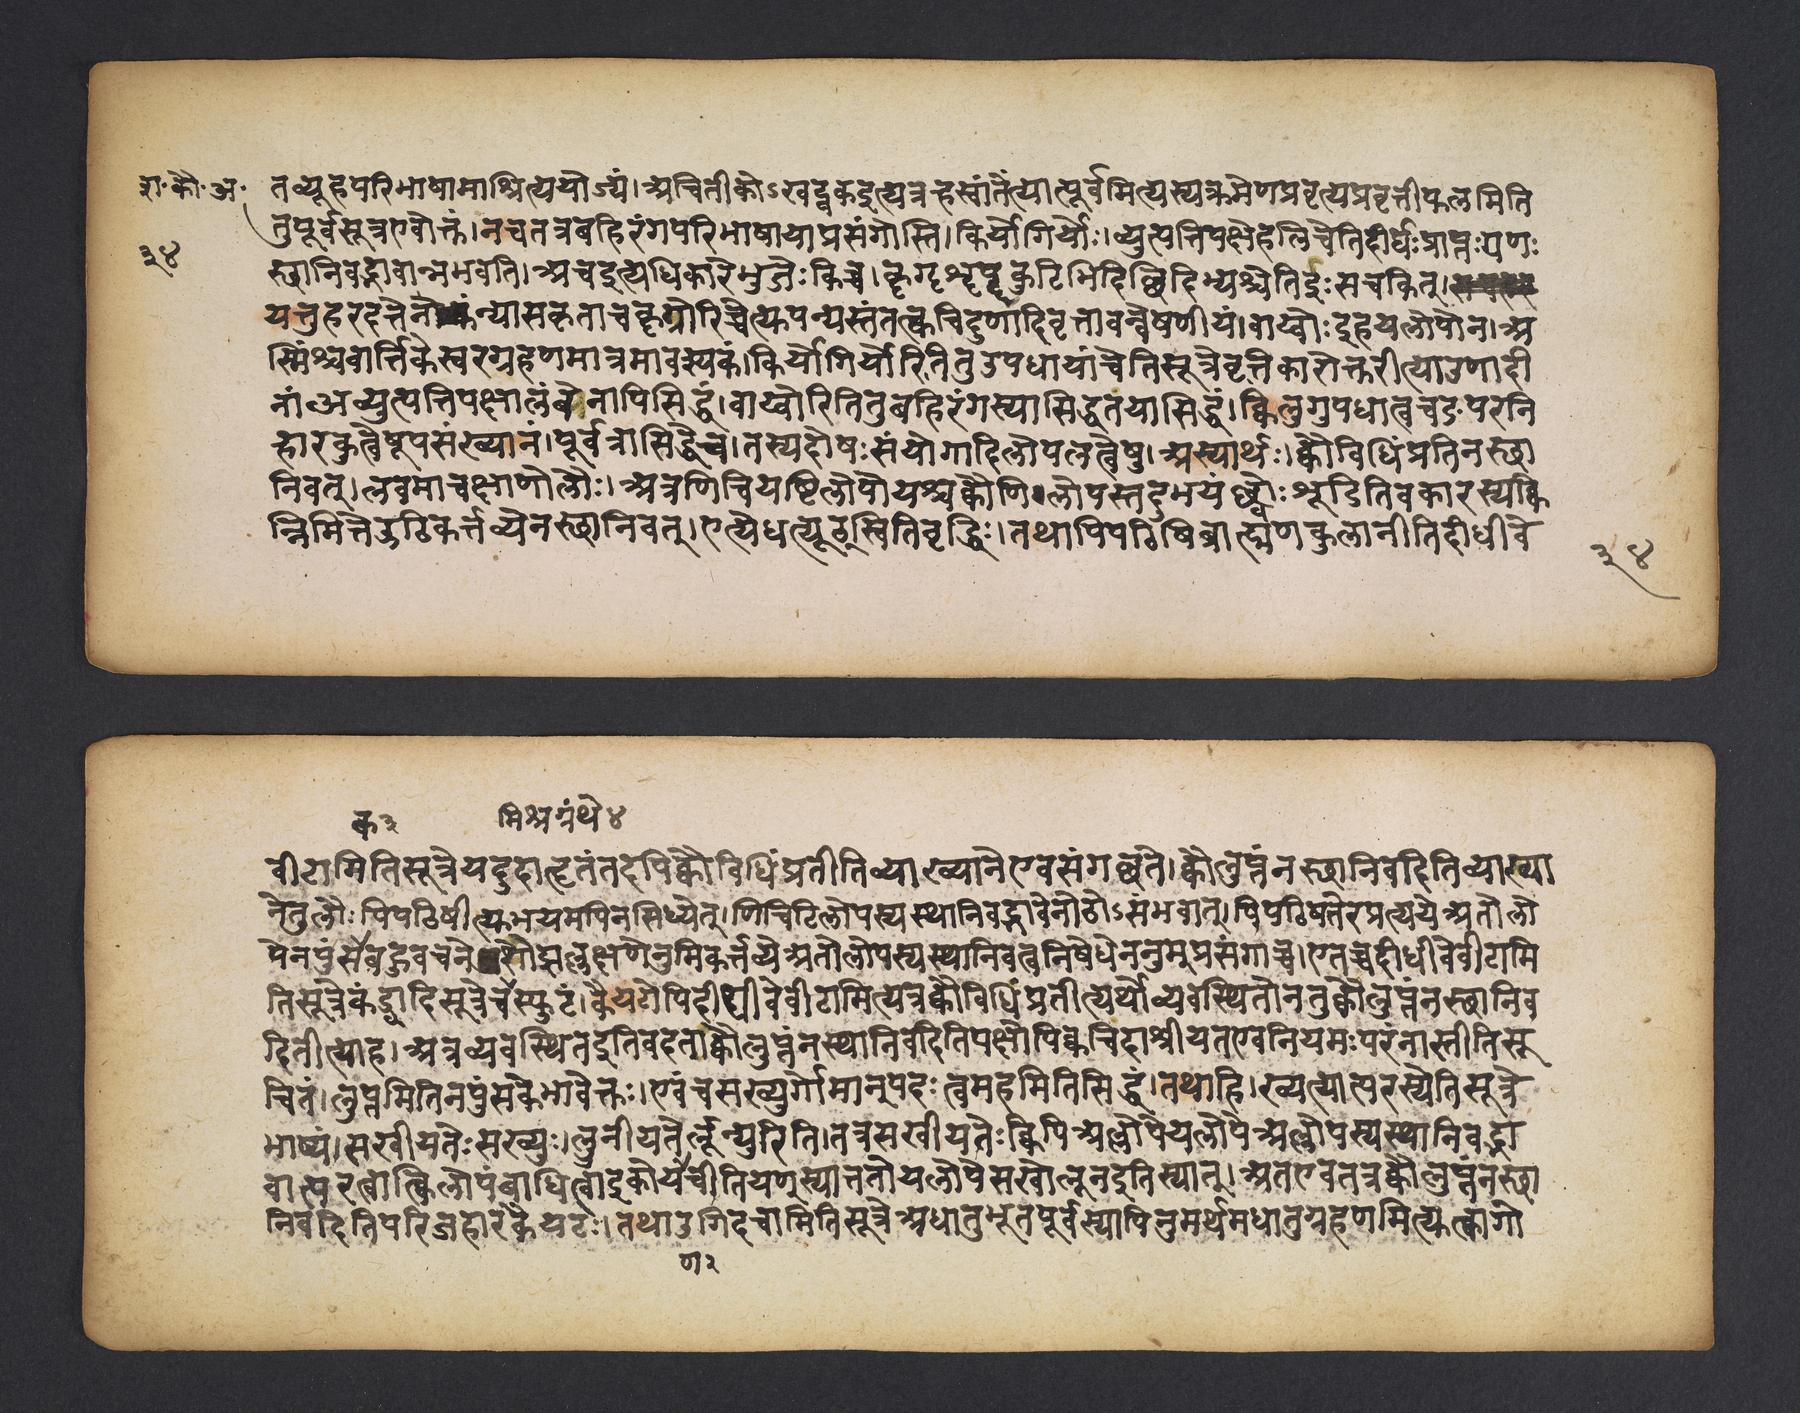 श॰कौ॰अ॰
३४
तव्यूहपरिभाषामाश्रित्येयौज्यं।अचितीकोऽखद्वकदुत्यत्रह्रस्वांतैत्यात्पूर्वमित्यस्यक्रमेणप्रवृत्यप्रवृत्तीफलमिति
तुपूर्वसूत्रएवोक्तं।नचतत्रबहिरंगपरिभाषायाप्रसंगोस्ति।किर्योगिर्योः।व्युत्पत्तिपक्षेहलिचेतिदीर्घःप्राप्नःयणः
स्छानिवद्भावान्नभवति।अचइत्यधिकारेभुजेःकिच्च।कृगृशॄपॄकुटिभिदिछिदिभ्यश्चेतिइःसचकित्।
यत्तुहरदत्तेनोक्तंन्यासकृताचकृग्रोरिच्चेत्यपन्यस्तंतत्क्वचिदुणादिवृत्तावन्वेषणीयं।वाय्वोःइहयलोपोन।अ
स्मिंश्चवार्त्तिकेस्वरग्रहेणमात्रमावस्यकं।किर्योगिर्योरितितुउपधायांचेतिसूत्रेवृत्तिकारोक्तरीत्याउणादी
नांअव्युत्पत्तिपक्षालंबेनापिसिद्धं।वाय्वोरितितुबहिरंगस्यासिद्धतयासिद्धं।क्विलुगुपधात्वचङपरनि
र्हारकुत्वेषूपसंख्यानं।पूर्वत्रासिद्धेच।तस्यदोषःसंयोगादिलोपलत्वेषु।अस्यार्थः।क्वौविधिंप्रतिनस्छा
निवत्।लवमाचक्षाणोलौः।अत्रणिचियष्टिलोपोयश्चक्वौणिलोपस्तदुभयंछ्वोःशूडितिवकारस्यक्वि
न्निमित्तेऊठिकर्त्तव्येनस्छानिवत्।एत्येधत्यूठ्स्वितिवृद्धिः।तथापिपठिषिब्राह्मणकुलानीतिदीधीवे
३४
क३ मिश्रग्रंथे४
वीटामितिसूत्रेयदुदाहृतंतदपिक्वौविधिंप्रतीतिव्याख्यानेएवसंगछते।क्वौलुप्नंनस्छानिवदितिव्याख्या
नेतुलौःपिपठिषीत्यभयमपिनसिध्येत्।णिचिटिलोपस्यस्थानिवद्भावेनोठोऽसंभवात्।पिपठिषतेरप्रत्ययेअतोलो
पेनपुंसेबहुवचनेझल्लक्षणेनुमिकर्त्तव्येअतोलोपस्यस्थानिवत्वनिषेधेननुम्प्रसंगाच्च।एतच्चदीधीवेवीटामि
तिसूत्रेकंड्वादिसूत्रेचस्फुटं।कैयटोपिदीधीवेवीटामित्यत्रक्वौविधिंप्रतीत्यर्थोव्यवस्थितोनतुक्वौलुप्नंनस्छानिव
दितीत्याह।अत्रव्यवस्थितइतिवदताक्वौलुप्नंनस्थानिवदितिपक्षोपिक्वचिदाश्रीयतएवनियमःपरंनास्तीतिसू
चितं।लुप्नमितिनपुंसकेभावेक्तः।एवंचसख्युर्गोमान्पहःत्वमहमितिसिद्धं।तथाहि।ख्यत्यात्परस्येतिसूत्रे
भाष्यं।सखीयतेःसख्युः।लुनीयतेर्लून्युरिति।तत्रसखीयतेःक्विपिअल्लोपेयलोपेअल्लोपस्यस्थानिवद्भा
वात्परत्वात्क्विलोपंबाधित्वाइकोयंचीतियण्स्यात्ततोयलोपेसखालूनइतिस्यात्।अतएवतत्रक्वौलुप्नंनस्छा
निवदितिपरिजहारकैयटः।तथाउगिदचामितिसूत्रेअधातुभूतपूर्वस्यापिनुमर्थमधातुग्रहणमित्यत्कागो
ण२